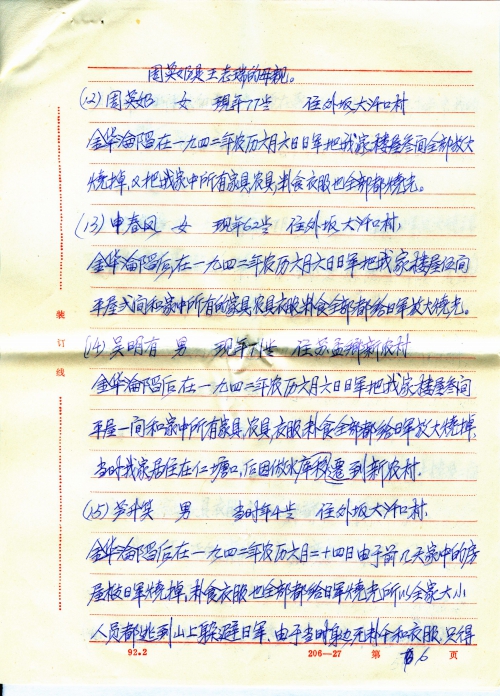 周英奶是王志瑞的母亲。
(12)周英奶 女 现年77岁 住外坂大沂口村
金华沦陷在一九四二年农历六月六日日军把我家楼屋叁间全部放火
烧掉,又把我家中所有家具农具,粮食衣服也全部都烧光。
(13)申春凤 女 现年62岁 住外坂大沂口村,
金华沦陷后在一九四二年农历六月六日日军把我家楼屋伍间
平屋弍间和家中所有的家具农具衣服粮食全部都给日军放火烧光。
(14)吴明有 男 现年71岁 住苏孟乡新农村
金华沦陷后在一九四二年农历六月六日日军把我家楼屋叁间
平屋一间和家中所有家具,农具,衣服,粮食全部都给日军放火烧掉
当时我家居住在仁塘口,后因做水库移遷到新农村.
(15) 男 当时年4岁 住外坂大沂口村.
金华沦陷后在一九四二年农历六月二十四日由于前几天家中的房
屋被日军烧掉,粮食衣服也全部都给日军烧光所以全家大小
人员都逃到山上躲避日军、由于当时身边无粮干和衣服,只得
装订线
92.2 206—27 第 6 页